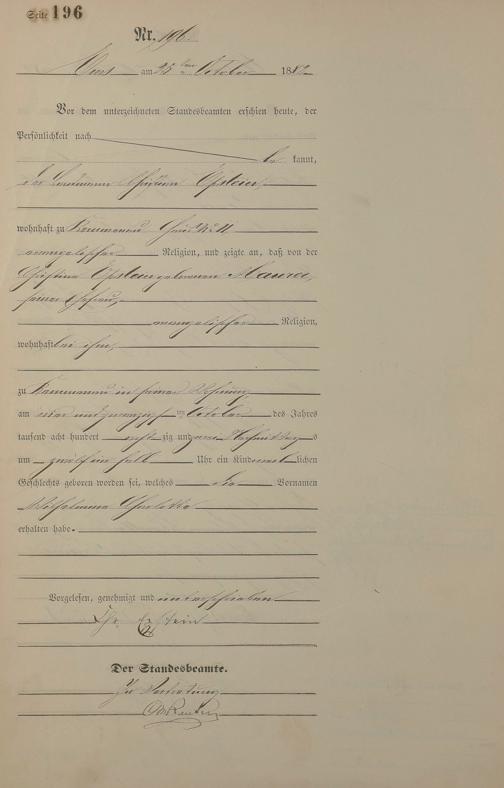 Seite 196
Nr. 196.
am 25ten October 188
Vor dem unterzeichneten Standesbeamten erschien heute, der
Persönlichkeit nach
be kannt,
der Christian Epstein,
wohnhaft zu
evangelischer Religion, und zeigte an, daß von der
Christina Epstein geborenen Maurer,
seiner Ehefrau,
evangelischer Religion,
wohnhaft bei ihm,
zu in seiner Wohnung
am und zwanzigsten October des Jahres
tausend acht hundert acht zig und Nachmittags
um zwölf ein halb Uhr ein Kind weib lichen
Geschlechts geboren worden sei, welches die Vornamen
Wilhelmina Charlotte
erhalten habe.
Vorgelesen, genehmigt und unterschrieben
Chr. Epstein
Der Standesbeamte.
In Vertretung